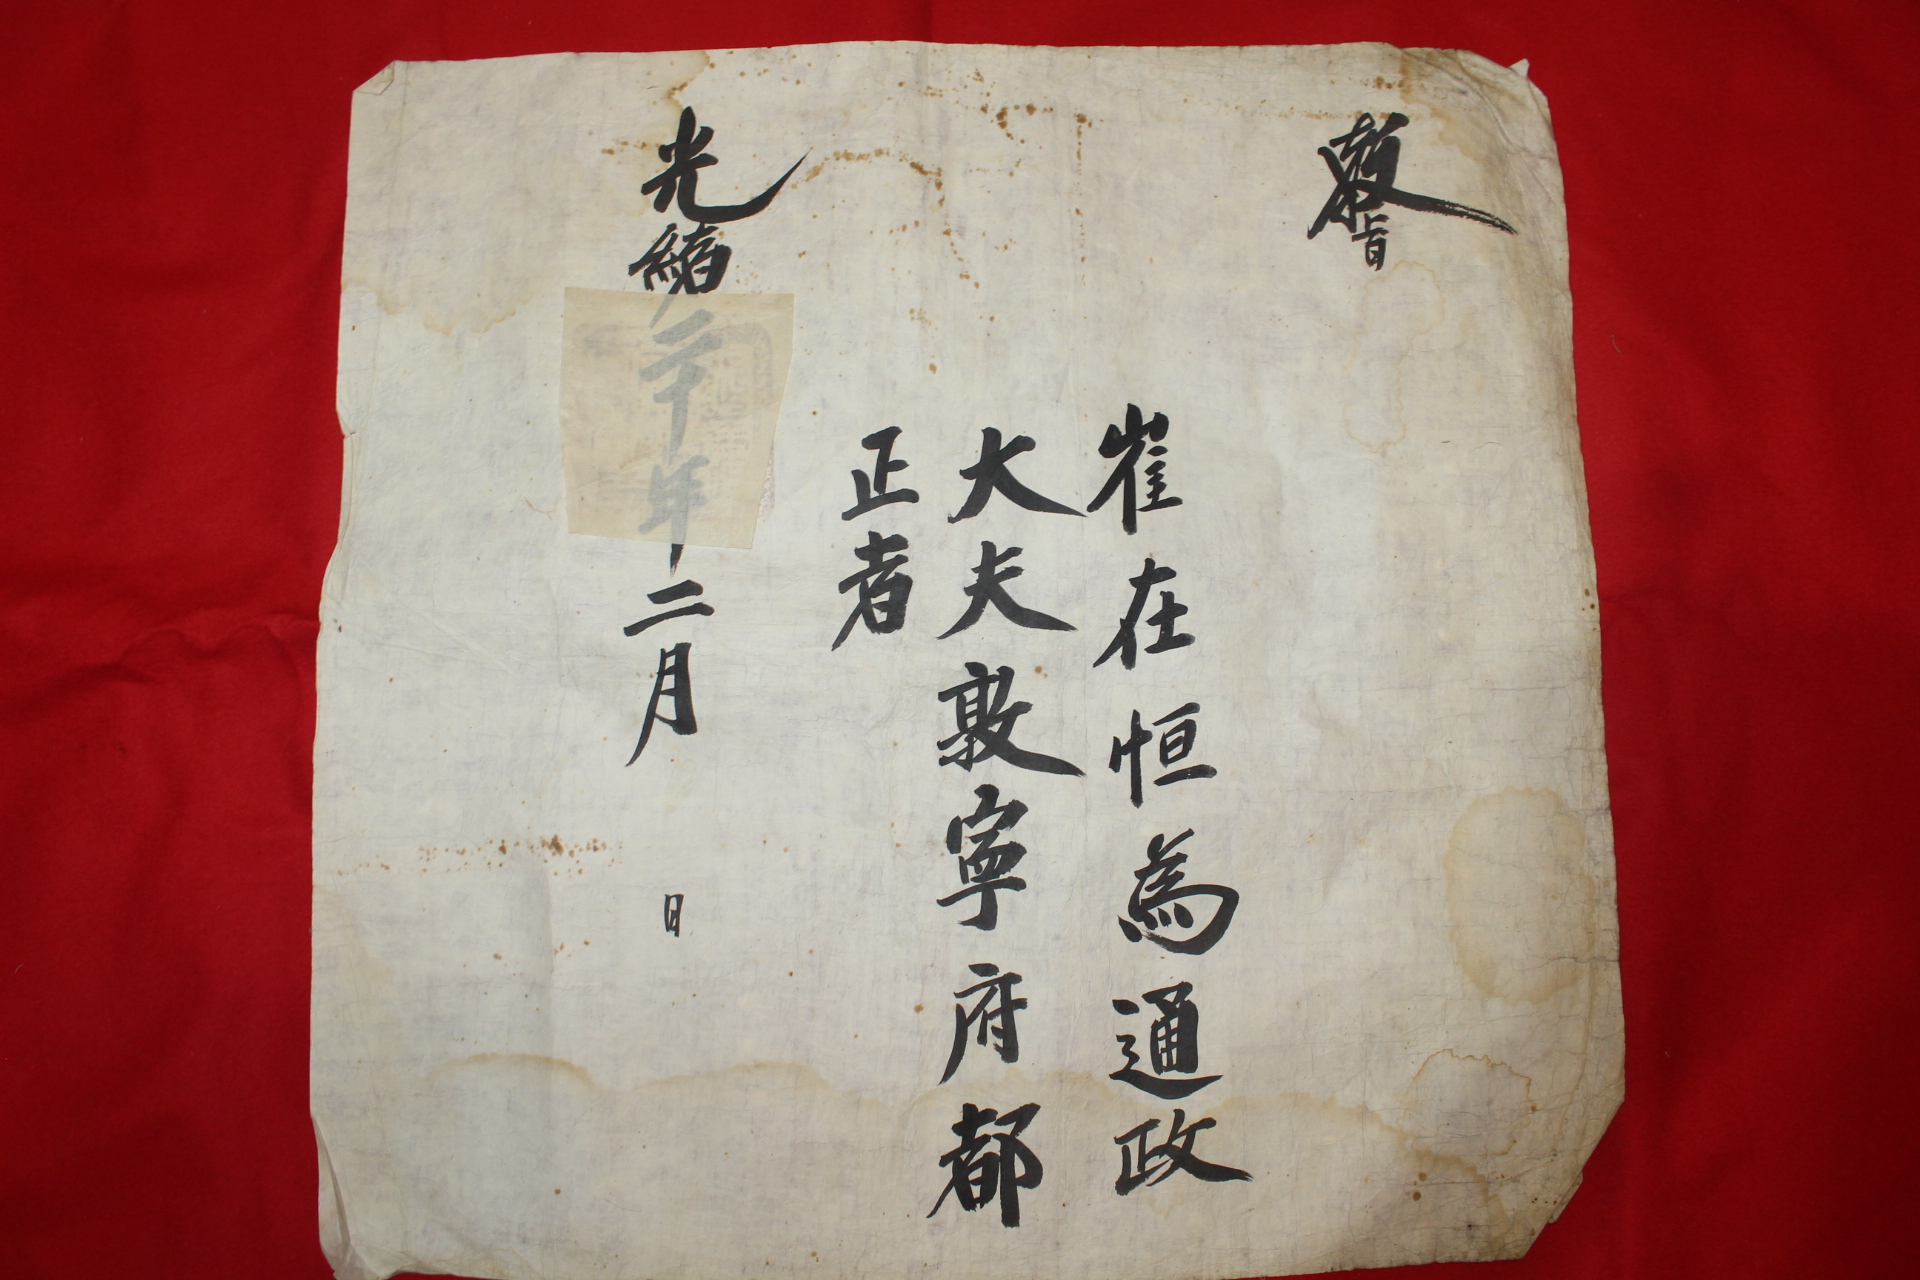 敎旨
崔在恒為通政
大夫敦寧府都
正者
光緖二十年二月 日